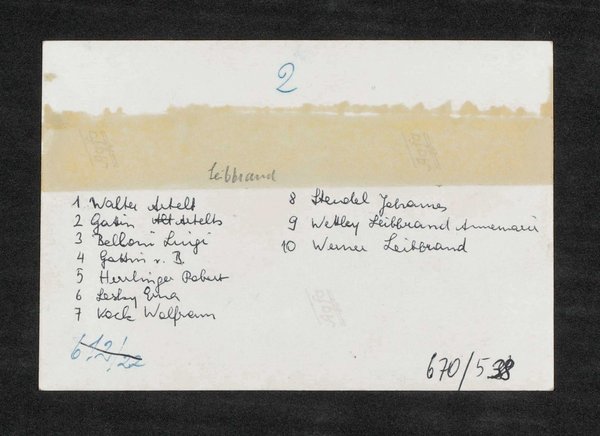 2
Leibbrand
1 Walter Artelt
2 Gattin Alt Artelts
3 Belloni Luigi
4 Gattin v. B
5 Herrlinger Robert
6 Lesky Erna
7 Kock Wolfram
8 Steudel Johannes
9 Wettley Leibbrand Annemarie
10 Werner Leibbrand
670/538